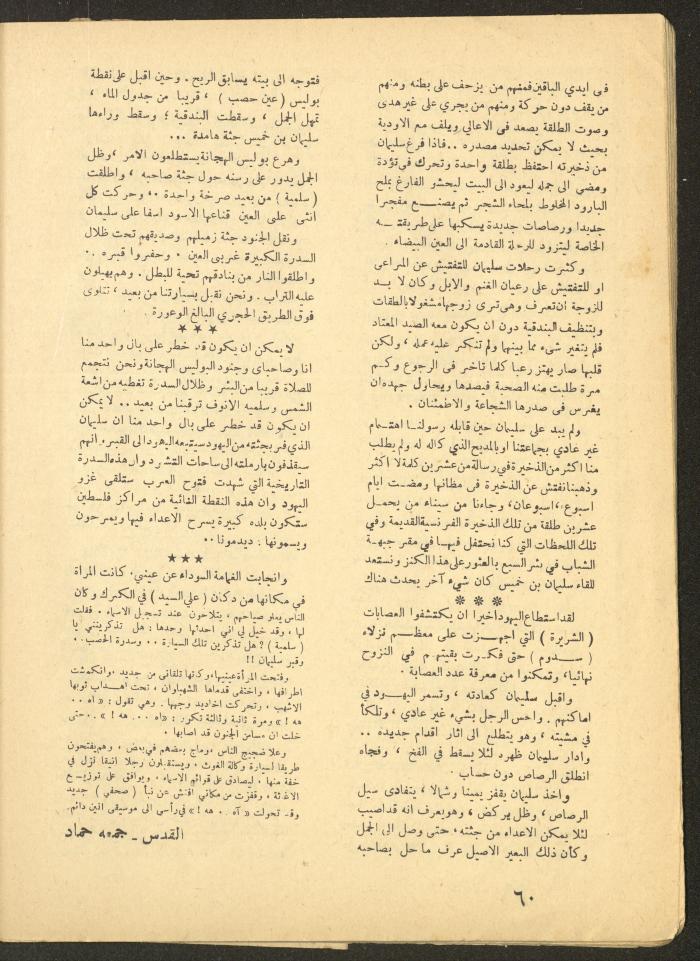 فى ايدي الباقين فمنهم من يزحف على بطنه ومنهم
من يقف دون حركة ومنهم من يجري على غير هدى
وصوت الطلقة يصعد فى الاعالي ويلف مع الاودية
بحيث لا يمكن تحديد مصدره .. فاذا فرغ سليمان
من ذخيرته احتفظ بطلقة واحدة وتحرك في تؤدة
ومضى الى جمله ليعود الى البيت ليحشو الفارغ بملح
البارود المخلوط بلحاء الشجر ثم يصنع مفجرا
جديدا ورصاصات جديدة يسكبها على طريقته
الخاصة ليتزود للرحلة القادمة الى العين البيضاء .
وكثرت رحلات سليمان للتفتيش عن المراعي
او للتفتيش على رعيان الغنم والابل وكان لا بد
للزوجة ان تعرف وهي ترى زوجها مشغولا بالطلقات
وبتنظيف البندقية دون ان يكون معه الصيد المعتاد
فلم يتغير شيء مما بينهما ولم تنكر عليه عمله ، ولكن
قلبها صار يهتز رعبا كلما تاخر في الرجوع وكم
مرة طلبت منه الصحبة فيصدها ويحاول جهده ان
يغرس فى صدرها الشجاعة والاطمئنان .
ولم يبد على سليمان حين قابله رسولنا اهتمام
غير عادي بجماعتنا او بالمديح الذي كاله له ولم يطلب
منا اكثر من الذخيرة في رسالة من عشرين كلمة لا اكثر
وذهبنا نفتش عن الذخيرة فى مظانها ومضت ايام
اسبوع ، اسبوعان ، وجاءنا من سيناء من يحمل
عشرين طلقة من تلك الذخيرة الفرنسية القديمة وفي
تلك اللحظات التي كنا نحتفل فيها في مقر جبهة
الشباب في بئر السبع بالعثور على هذا الكنز ونستعد
للقاء سليمان بن خميس كان شيء آخر يحدث هناك
* * *
لقد استطاع اليهود اخيرا ان يكتشفوا العصابات
( الشريرة ) التي اجهزت على معظم نزلاء
( سدوم ) حتى فكرت بقيتهم في النزوح
نهائيا ، وتمكنوا من معرفة عدد العصابة .
واقبل سليمان كعادته ، وتسمر اليهود في
اماكنهم . واحس الرجل بشيء غير عادي ، وتلكأ
في مشيته ، وهو يتطلع الى اثار اقدام جديده ..
وادار سليمان ظهره لئلا يسقط في الفخ ، وفجاه
انطلق الرصاص دون حساب .
واخذ سليمان يقفز يمينا وشمالا ، يتفادى سيل
الرصاص ، وظل يركض ، وهو يعرف انه قد اصيب
لئلا يمكن الاعداء من جثته ، حتى وصل الى الجمل
وكأن ذلك البعير الاصيل عرف ما حل بصاحبه
فتوجه الى بيته يسابق الريح . وحين اقبل على نقطة
بوليس ( عين حصب ) ، قريبا من جدول الماء ،
تمهل الجمل ، وسقطت البندقية ؛ وسقط وراءها
سليمان بن خميس جثة هامدة ...
وهرع بوليس الهجانة يستطلعون الامر ، وظل
الجمل يدور على رسنه حول جثة صاحبه ، واطلقت
( سلمية ) من بعيد صرخة واحدة .، وحركت كل
انثى على العين قناعها الاسود اسفا على سليمان
ونقل الجنود جثة زميلهم وصديقهم تحت ظلال
السدرة الكبيرة غربي العين . وحفروا قبره ..
واطلقوا النار من بنادقهم تحية للبطل . وهم يهيلون
عليه التراب . ونحن نقبل بسيارتنا من بعيد ، تتلوى
فوق الطريق الحجري البالغ الوعورة .
* * *
لا يمكن ان يكون قد خطر على بال واحد منا
انا وصاحباي وجنود البوليس الهجانة ونحن نتجمع
للصلاة قريبا من البئر وظلال السدرة تغطيه من اشعة
الشمس وسلميه الانوف ترقبنا من بعيد .. لا يمكن
ان يكون قد خطر على بال واحد منا ان سليمان
الذي فر بجثته من اليهود سيتبعه اليهود الى القبر. انهم
سيقذفون بارملته الى ساحات التشرد وان هذه السدرة
التاريخية التي شهدت فتوح العرب ستلقى غزو
اليهود وان هذه النقطة النائية من مراكز فلسطين
ستكون بلده كبيرة يسرح الاعداء فيها ويمرحون
ويسمونها : ديمونا ..
* * *
وانجابت الغمامة السوداء عن عيني . كانت المرأة
في مكانها من دكان ( علي السيد ) في الكرك وكان
الناس يعلو صياحهم ، يتلاحون عند تسجيل الاسماء . فقلت
لها ، وقد خيل لي اني احدثها وحدها : هل تذكرينني يا
( سلمية ) ؟ هل تذكرين تلك السيارة .. وسدرة الحصب ..
وقبر سليمان !!
وفتحت المرأة عينيها ، وكأنها تلقاني من جديد ، وانكمشت
اطرافها ، واختفى قدماها الشهباوان ، تحت اهداب ثوبها
الاشهب ، وتحركت اخاديد وجهها . وهي تقول : « آه ..
هه ! » ومرة ثانية وثالثة تكرر : « آه ... هه ! » .. حتى
خلت ان مسا من الجنون قد اصابها .
وعلا ضجيج الناس ، وماج بعضهم في بعض ، وهم يفتحون
طريقا لسيارة وكالة الغوث ، ويستقبلون رجلا انيقا نزل في
خفة منها ، ليصادق على قوائم الاسماء . ويوافق على توزيع
الاغاثة ، وقفزت من مكاني افتش عن نبأ ( صحفي ) جديد
وقد تحولت « آه .. هه ! » في رأسى الى موسيقى انين دائم.
القدس ـ جمعه حماد
٦٠